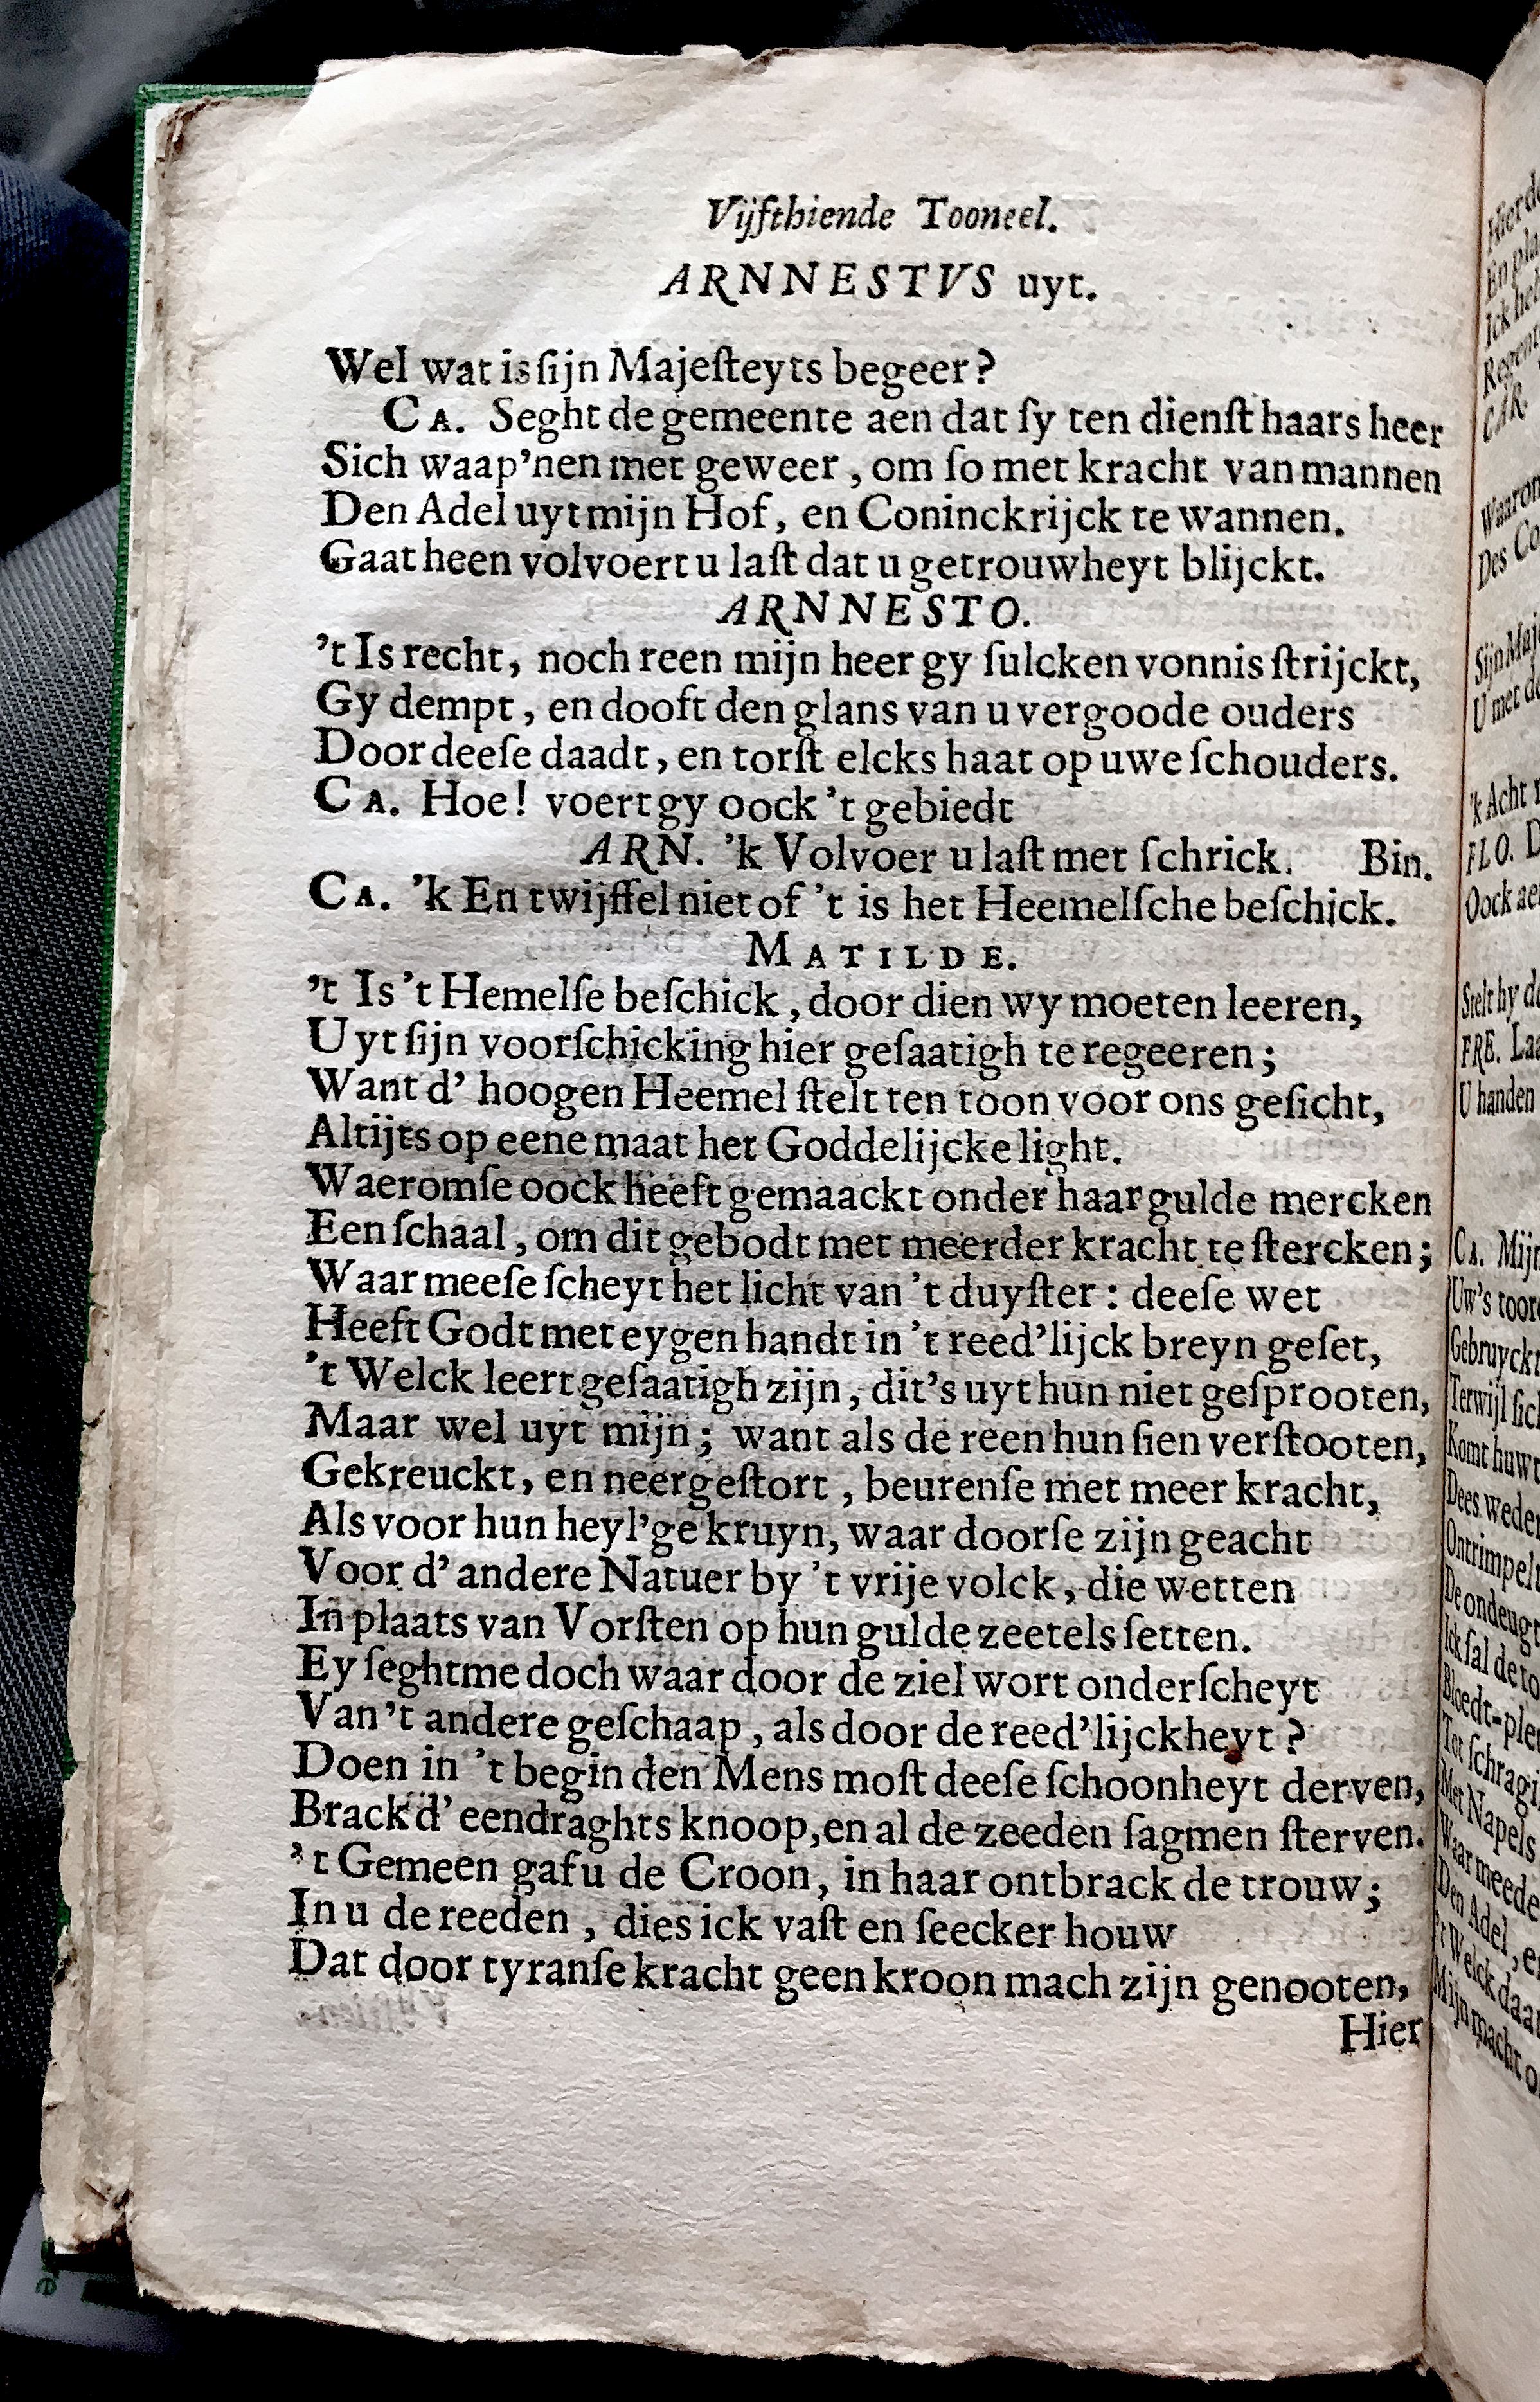 Vijfthiende Tooneel.
ARNNESTVS uyt.
Wel wat is ſijn Majeſteyts begeer?
CA. Seght de gemeente aen dat ſy ten dienſt haars heer
Sich waap'nen met geweer, om ſo met kracht van mannen
Den Adel uyt mijn Hof, en Coninckrijck te wannen.
Gaat heen volvoert u laſt dat u getrouwheyt blijckt.
ARNNESTO.
't Is recht, noch reen mijn heer gy ſulcken vonnis ſtrijckt,
Gy dempt, en dooft den glans van u vergoode ouders
Door deeſe daadt, en torſt elcks haat op uwe ſchouders.
CA. Hoe! voert gy oock 't gebiedt
ARN. 'k Volvoer u laſt met ſchrick. Bin.
CA. 'k En twijffel niet of 't is het Heemelſche beſchick.
MATILDE.
't Is 't Hemelſe beſchick, door dien wy moeten leeren,
Uyt ſijn voorſchicking hier geſaatigh te regeeren;
Want d' hoogen Heemel ſtelt ten toon voor ons geſicht,
Altijts op eene maat het Goddelijcke light.
Waeromſe oock heeft gemaackt onder haar gulde mercken
Een ſchaal, om dit gebodt met meerder kracht te ſtercken;
Waar meeſe ſcheyt het licht van 't duyſter: deeſe wet
Heeft Godt met eygen handt in 't reed'lijck breyn geſet,
't Welck leert geſaatigh zijn, dit's uyt hun niet geſprooten,
Maar wel uyt mijn; want als de reen hun ſien verſtooten,
Gekreuckt, en neergeſtort, beurenſe met meer kracht,
Als voor hun heyl'ge kruyn, waar doorſe zijn geacht
Voor d' andere Natuer by 't vrije volck, die wetten
In plaats van Vorſten op hun gulde zeetels ſetten.
Ey ſeghtme doch waar door de ziel wort onderſcheyt
Van 't andere geſchaap, als door de reed'lijckheyt?
Doen in 't begin den Mens moſt deeſe ſchoonheyt derven,
Brack d' eendraghts knoop, en al de zeeden ſagmen ſterven.
't Gemeen gaf u de Croon, in haar ontbrack de trouw;
In u de reeden, dies ick vaſt en ſeecker houw
Dat door tyranſe kracht geen kroon mach zijn genooten,
Hier